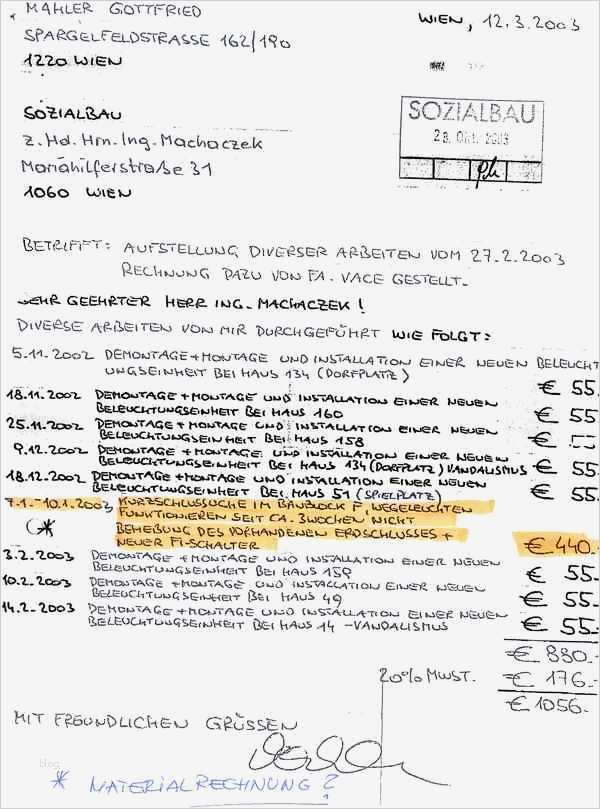 MAHLER GOTTFRIED
SPARGELFELDSTRASSE 162/190
1220 WIEN
WIEN, 12.3.2003
SOZIALBAU
z.Hd. Hrn. Ing. Machaczek
Mariahilferstraße 31
1060 WIEN
SOZIALBAU
2003
BETRIFFT: AUFSTELLUNG DIVERSER ARBEITEN VOM 27.2.2003
RECHNUNG DAZU VON FA. VACE GESTELLT.
SEHR GEEHRTER HERR ING. MACHACZEK!
DIVERSE ARBEITEN VON MIR DURCHGEFÜHRT WIE FOLGT:
5.11.2002 DEMONTAGE+MONTAGE UND INSTALLATION EINER NEUEN BELEUCHT
UNGSEINHEIT BEI HAUS 134 (DORFPLATZ) € 55.
18.11.2002 DEMONTAGE+MONTAGE UND INSTALLATION EINER NEUEN
BELEUCHTUNGSEINHEIT BEI HAUS 160 € 55.
25.11.2002 DEMONTAGE+MONTAGE UND INSTALLATION EINER NEUEN
BELEUCHTUNGSEINHEIT BEI HAUS 158 €
9.12.2002 DEMONTAGE+MONTAGE UND INSTALLATION EINER NEUEN
BELEUCHTUNGSEINHEIT BEI HAUS 134 (DORFPLATZ) VANDALISMUS € 55.
18.12.2002 DEMONTAGE+MONTAGE UND INSTALLATION EINER NEUEN
BELEUCHTUNGSEINHEIT BEI HAUS 51 (SPIELPLATZ) € 55.
7.1.-10.1.2003 KURZSCHLUSSSUCHE IM BAUBLOCK F, WEGELEUCHTEN
FUNKTIONIEREN SEIT CA. 3 WOCHEN NICHT
* BEHEBUNG DES VORHANDENEN ERDSCHLUSSES +
NEUER FI-SCHALTER € 440.-
3.2.2003 DEMONTAGE+MONTAGE UND INSTALLATION EINER NEUEN
BELEUCHTUNGSEINHEIT BEI HAUS 159 € 55.-
10.2.2003 DEMONTAGE+MONTAGE UND INSTALLATION EINER NEUEN
BELEUCHTUNGSEINHEIT BEI HAUS 49 € 55.-
14.2.2003 DEMONTAGE+MONTAGE UND INSTALLATION EINER NEUEN
BELEUCHTUNGSEINHEIT BEI HAUS 14 -VANDALISMUS € 55.-
€ 880.-
20% MWST. € 176.-
€ 1056.-
MIT FREUNDLICHEN GRÜSSEN
* MATERIALRECHNUNG?
blog